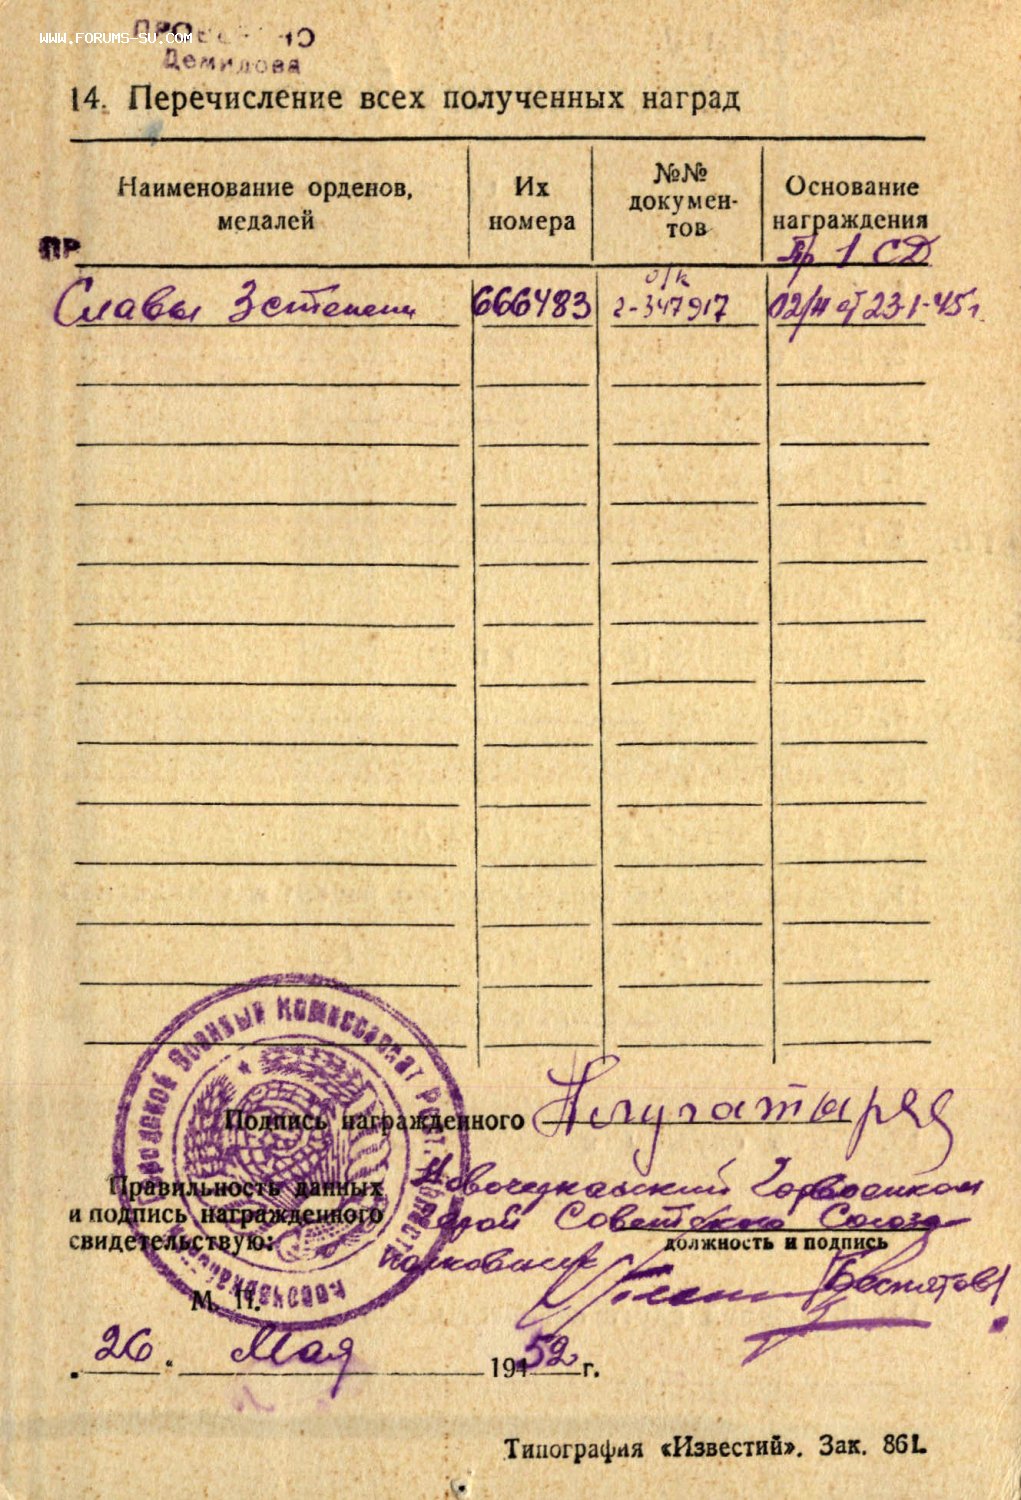 WWW.FORUMS-SU.COM
Демидова
14. Перечисление всех полученных наград
Наименование орденов, медалей
Их номера
№№ докумен-тов
Основание награждения
ПР
Пр 1 СД
Славы 3 степени 666483 о/к 2-347917 02/н от 23-1-45 г.
Подпись награжденного
Правильность данных
и подпись награжденного
свидетельствую:
Новочеркасский Горвоенком
Герой Советского Союза
должность и подпись
полковник
М. П.
Новочеркасский Городской Военный Комиссариат Рост. области
26 " Мая 1952 г.
Типография «Известий». Зак. 861.